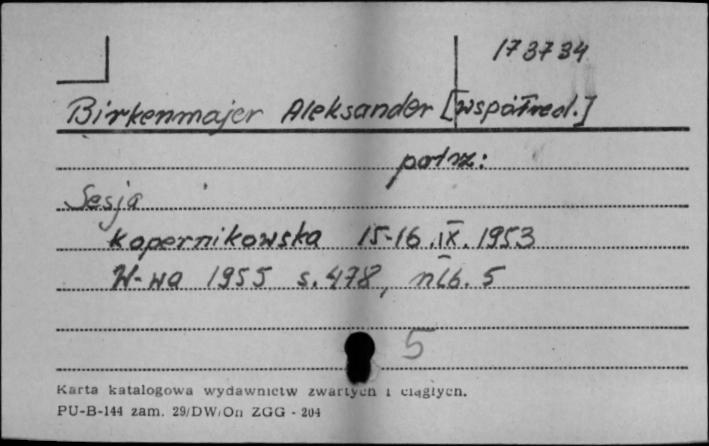 173734
Birkenmajer Aleksander [współred.]
patrz:
Sesja
Kopernikowska 15-16.IX.1953
W-wa 1955 s. 478, nlb. 5
5
Karta katalogowa wydawnictw zwartych i ciągłych.
PU-B-144 zam. 29/DW/On ZGG - 204